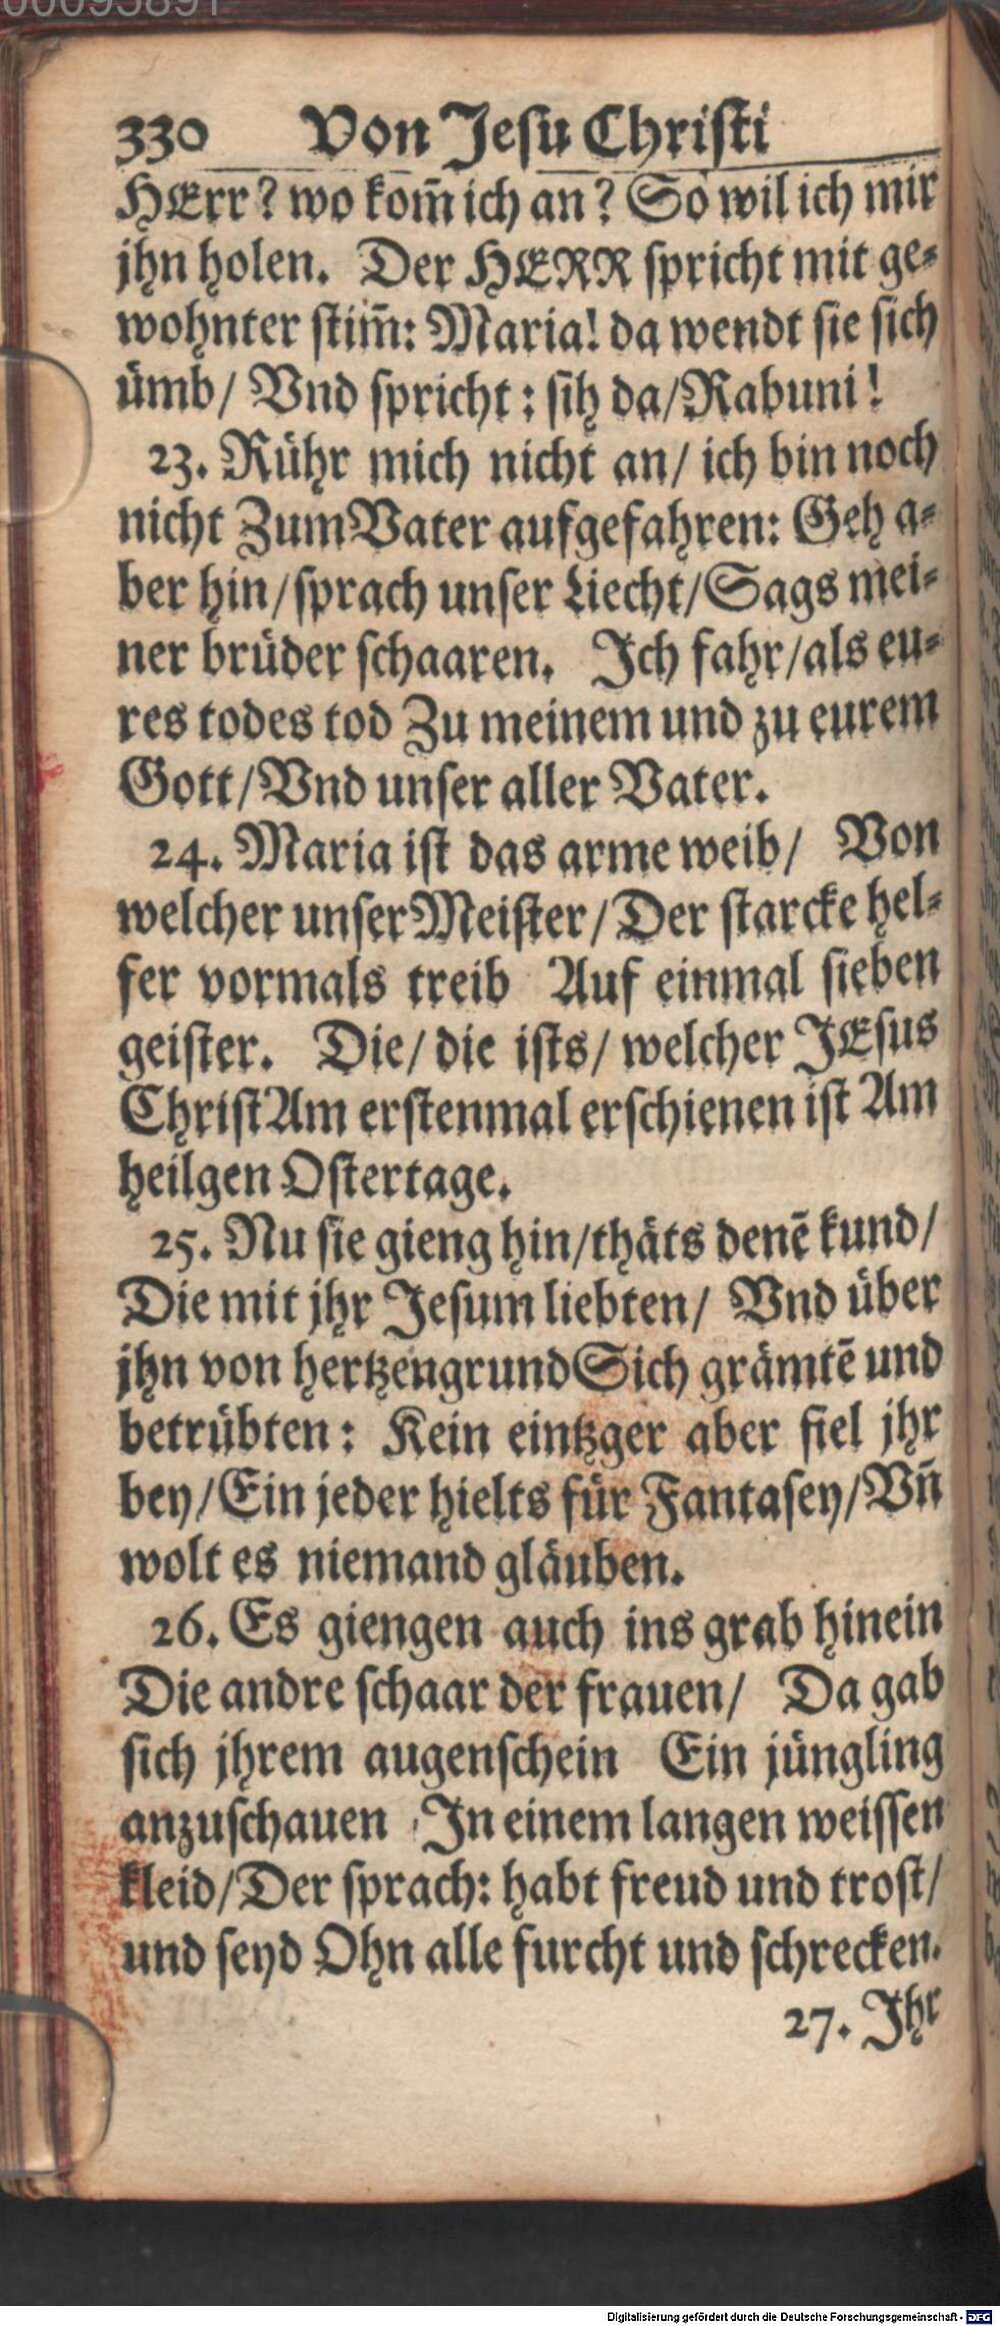 00095891
330 Von Jesu Christi
HErr? wo kom̃ ich an? So wil ich mir
jhn holen. Der HERR spricht mit ge-
wohnter stim̃: Maria! da wendt sie sich
ümb/ Vnd spricht: sih da/Rabuni!
23. Rühr mich nicht an/ ich bin noch
nicht Zum Vater aufgefahren: Geh a-
ber hin/sprach unser Liecht/Sags mei-
ner brüder schaaren. Ich fahr/als eu-
res todes tod Zu meinem und zu eurem
Gott/Vnd unser aller Vater.
24. Maria ist das arme weib/ Von
welcher unser Meister/Der starcke hel-
fer vormals treib Auf einmal sieben
geister. Die/ die ists/ welcher JEsus
Christ Am erstenmal erschienen ist Am
heilgen Ostertage.
25. Nu sie gieng hin/thäts denẽ kund/
Die mit jhr Jesum liebten/ Vnd über
jhn von hertzengrund Sich grämtẽ und
betrübten: Kein eintzger aber fiel jhr
bey/Ein jeder hielts für Fantasey/Vñ
wolt es niemand gläuben.
26. Es giengen auch ins grab hinein
Die andre schaar der frauen/ Da gab
sich jhrem augenschein Ein jüngling
anzuschauen In einem langen weissen
kleid/Der sprach: habt freud und trost/
und seyd Ohn alle furcht und schrecken.
27. Jhr
Digitalisierung gefördert durch die Deutsche Forschungsgemeinschaft - DFG